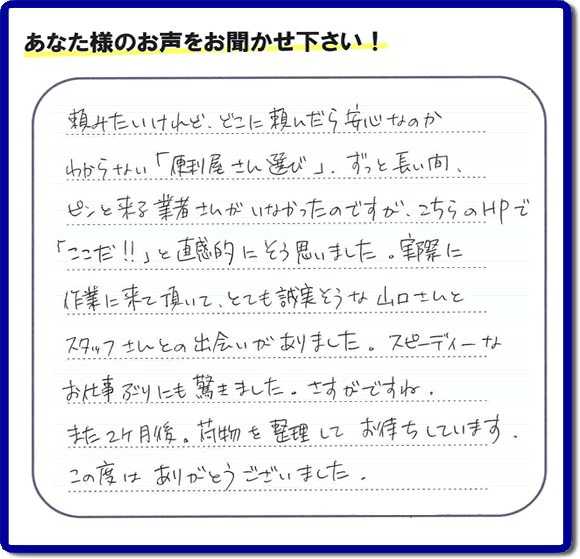 あなた様のお声をお聞かせ下さい！
頼みたいけれど、どこに頼んだら安心なのか
わからない「便利屋さん選び」．ずっと長い間、
ピンと来る業者さんがいなかったのですが、こちらのHPで
「ここだ!!」と直感的にそう思いました。実際に
作業に来て頂いて、とても誠実そうな山口さんと
スタッフさんとの出会いがありました。スピーディーな
お仕事ぶりにも驚きました。さすがですね．
また2ケ月後。荷物を整理して お待ちしています．
この度は ありがとうございました．